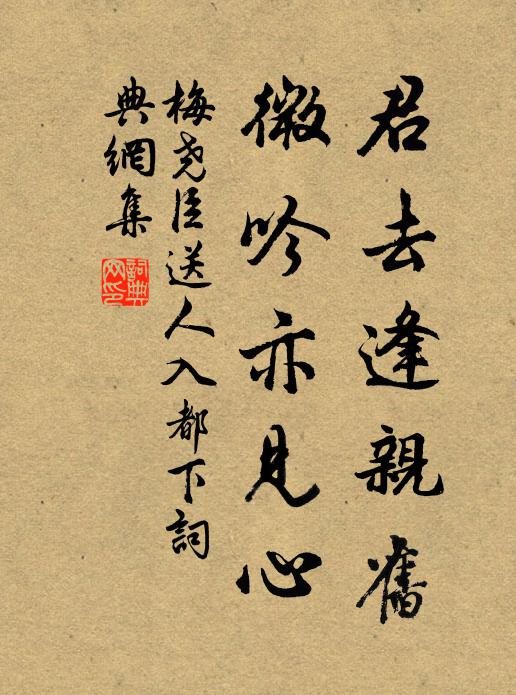 君去逢親舊
微吟亦見心
梅堯臣送人入都下詞
典網集
詞典網印